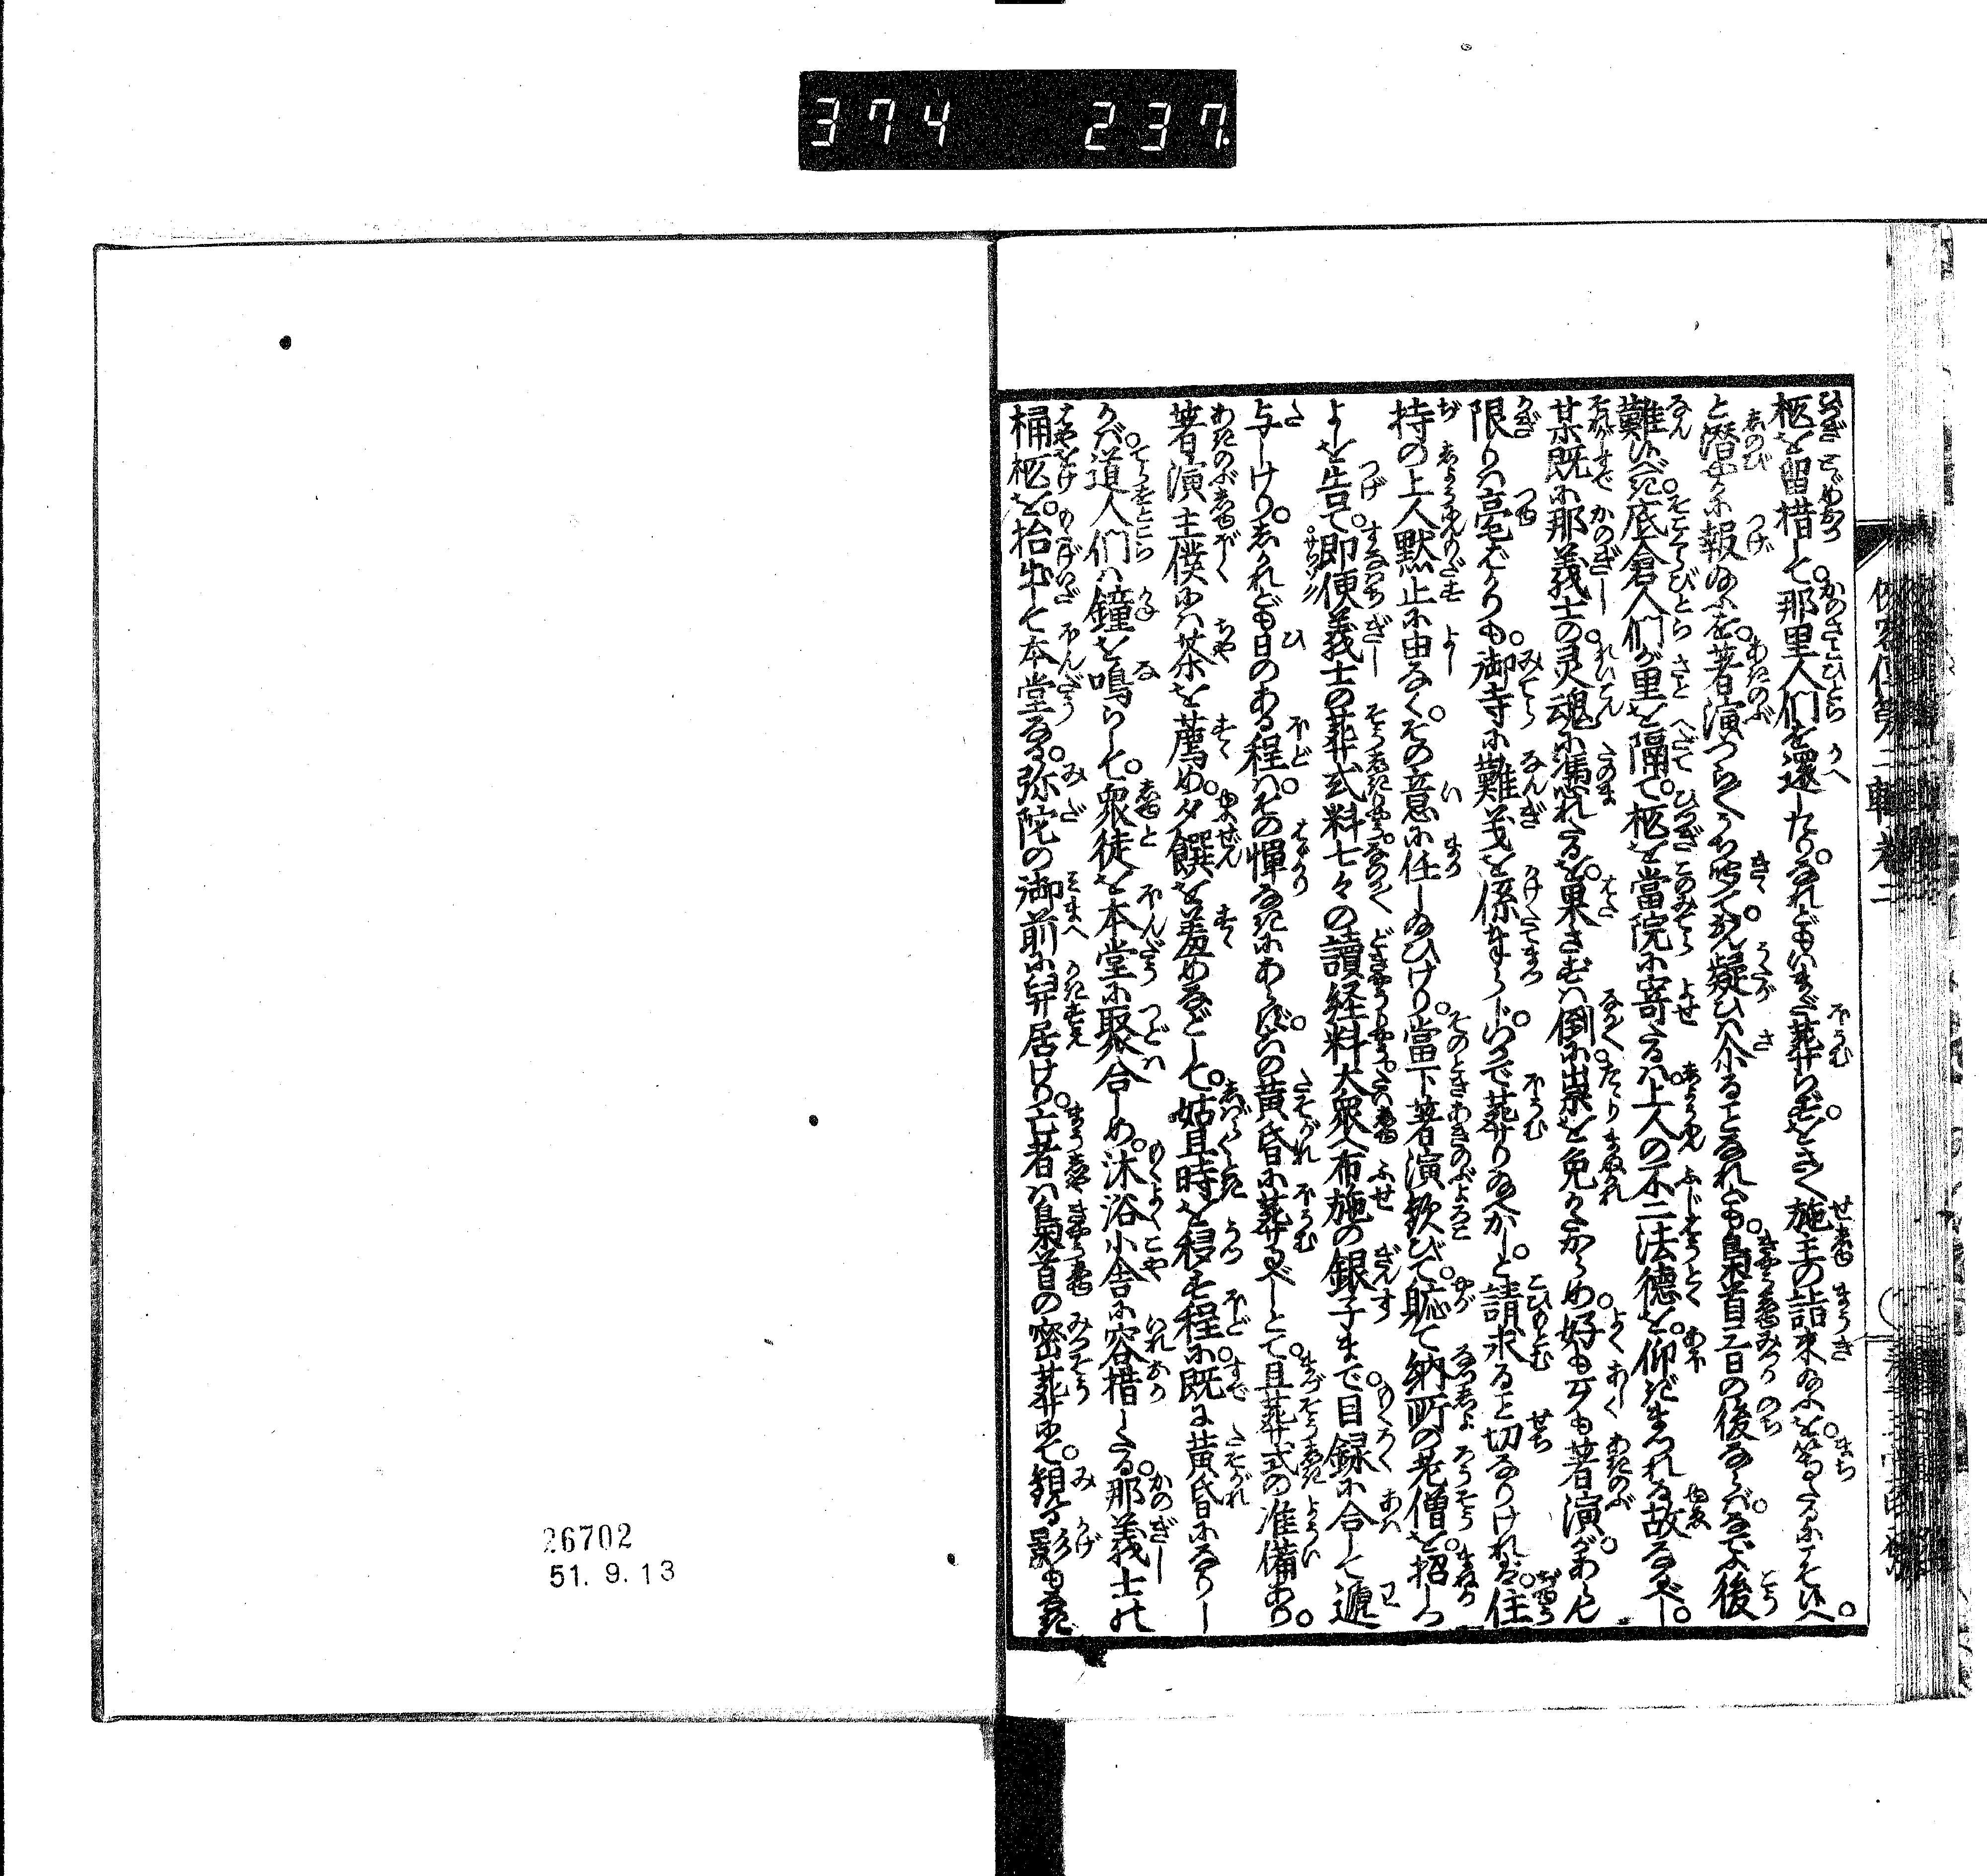 374 237
柩を留措して。那里人們を還したり。なれどもいまだ葬らず。とく施主の詣来給ふを等たるにこそいへ。
と潜やかに報給ふを。著演つら〳〵うち聴て。疑ひは介ることなれども。梟首三日の後ならば。なでふ後
難いべき。底倉人們が里を隔て。柩を當院に寄たるは。上人の不二法徳を。仰ぎまつれる故なるべし。
某既に那義士の。灵魂に憑れたるを。果さずは倒に。祟を免れがたからめ。好も歹も著演が。あらん
限りは毫ばかりも。御寺に難義を係まつらじ。いかで葬り給へかし。と請求ること切なりければ。住
持の上人黙止に由なく。その意に任し給ひけり。當下著演歓びて。軈て納所の老僧を。招きつ
よしを告て。即便義士の葬式料七々の讀経料大衆へ布施の銀子まで。目録に合して遞
与しけり。しかれども日のある程は。その憚なきにあらず。六の黄昏に葬るべしとて。且葬式の准備あり。
著演主僕には茶を薦め。夕饌を羞めなどして。姑且時を移す程に。既に黄昏になりし
かば。道人們は鐘を鳴らして。衆徒を本堂に聚合しめ。沐浴小舎に容措したる。那義士の
桶柩を。抬出して本堂なる。弥陀の御前に舁居けり。亡者は梟首の密葬にて。親る影も
26702
51. 9. 13